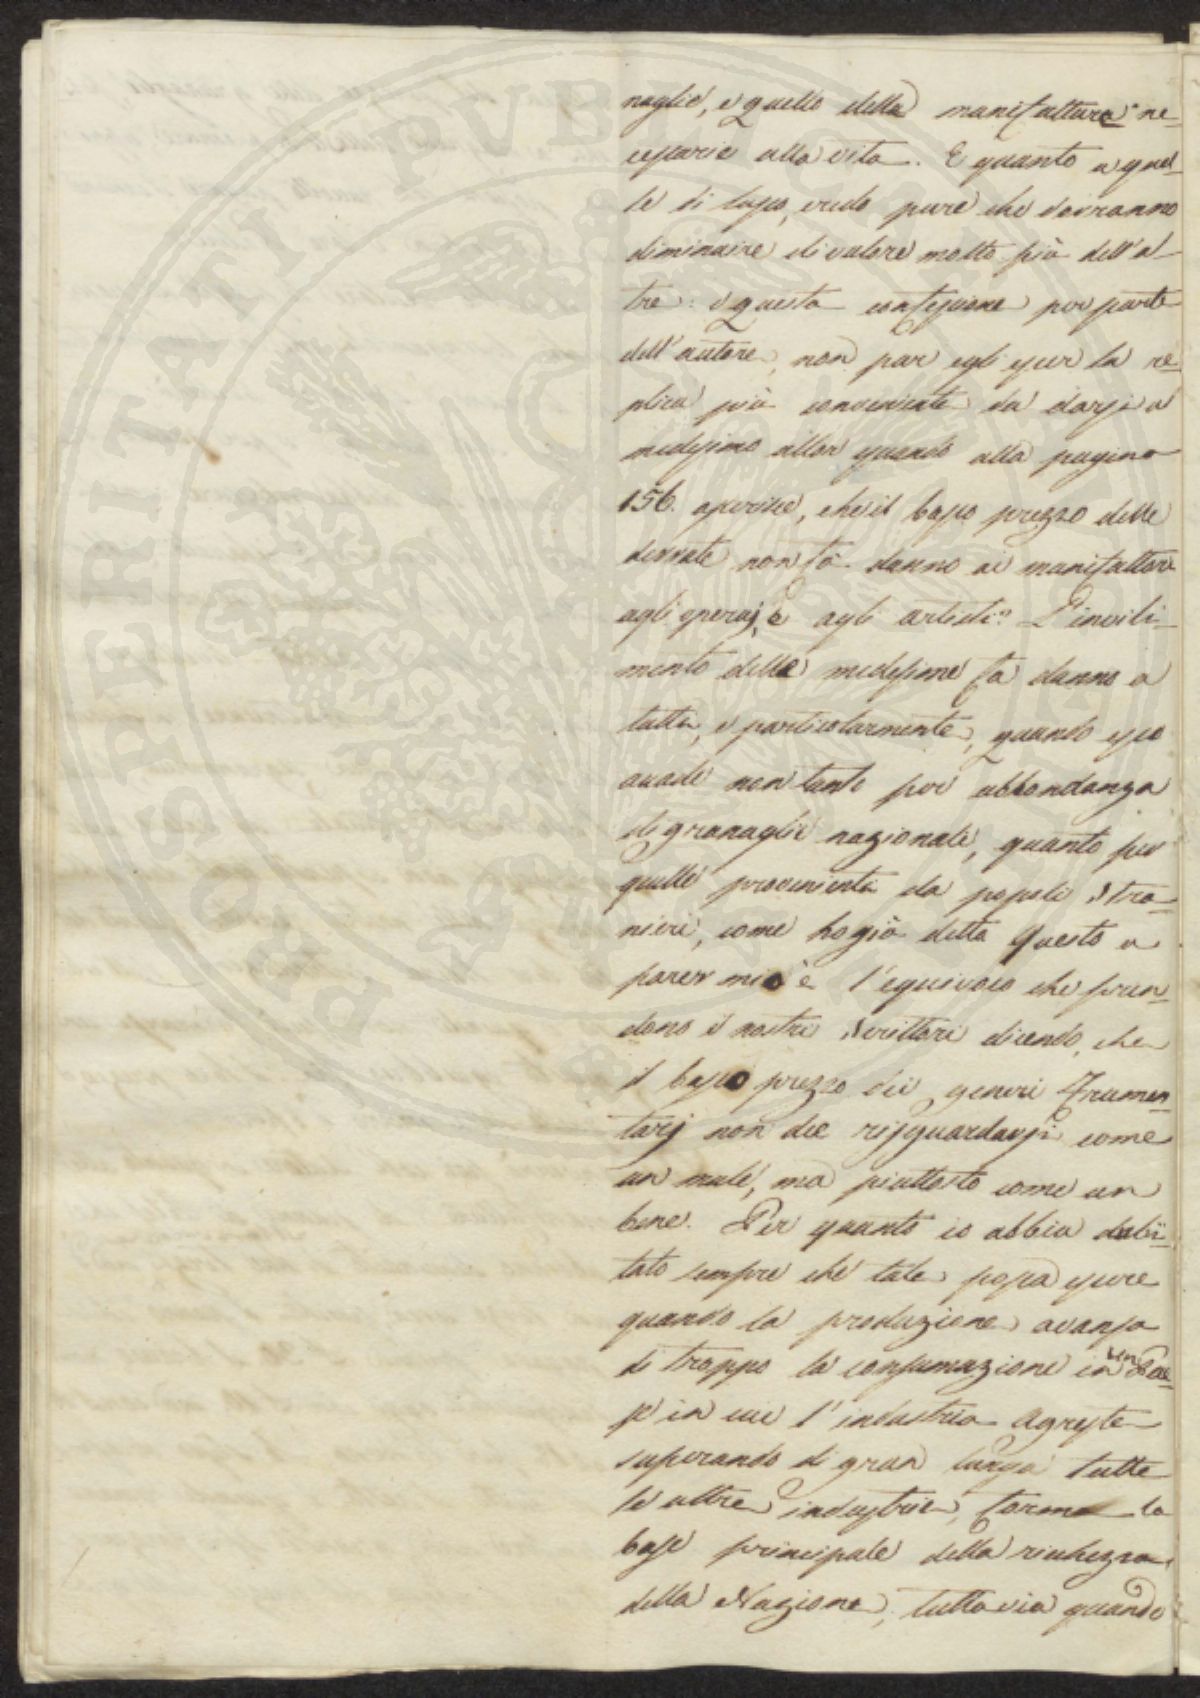 naglie, e quello della manifatture ne-
cessarie alla vita. E quanto a quel-
le di lusso, credo pure che dovranno
diminuire di valore molto più dell'al-
tre: e questa confessione per parte
dell'autore, non par egli esser la re-
plica più conveniente da darsi a
medesimo allor quando alla pagina
156. asserisce, che il basso prezzo delle
derrate non fà danno ai manifattori
agli operaj, e agli artisti? L'invili-
mento delle medesime fa danno a
tutti, e particolarmente, quando esso
accade non tanto per abbondanza
di granaglie nazionale, quanto per
quelle provenienti da popoli stra-
nieri, come ho già detto. Questo a
parer mio è l'equivoco che pren-
dono i nostri Scrittori dicendo, che
il basso prezzo dei generi frumen-
tarj non dee risguardarsi come
un male, ma piuttosto come un
bene. Per quanto io abbia dubi-
tato sempre che tale possa essere
quando la produzione avanza
di troppo la consumazione in un Pae-
se in cui l'industria Agreste
superando di gran lunga tutte
le altre industrie, forma la
base principale della ricchezza
della Nazione, tuttavia quando
PROSPERITATI PVBLICAE